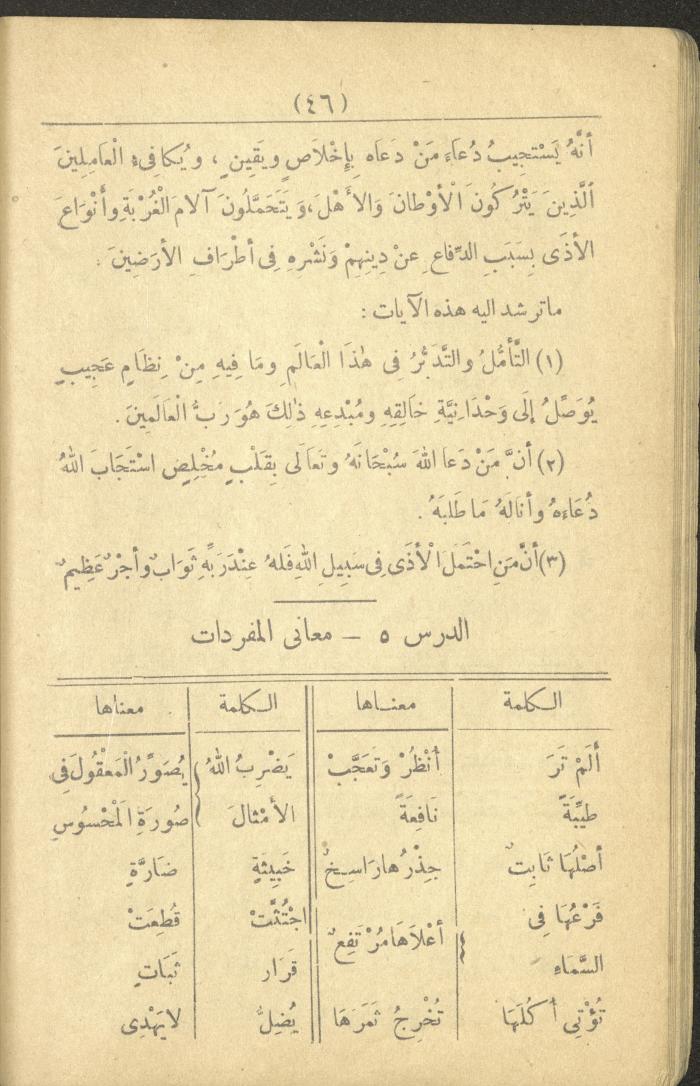 (٤٦)
أنَّهُ يَسْتَجِيبُ دُعَاءَ مَنْ دَعَاه بِإِخْلَاصٍ ويَقِينٍ ، ويُكافِىءُ الْعَامِلِينَ
الَّذِينَ يَتْرُكُونَ الْأَوْطانَ وَالأَهْلَ، وَيَتَحَمَّلُونَ آلامَ الْغُرْبَةِ وأَنْوَاعَ
الأذَى بِسَبَبِ الدِّفاعِ عنْ دِينِهِمْ وَنَشْرِهِ فِى أطْرَافِ الأرَضِينَ .
ماترشد اليه هذه الآيات :
(١) التَّأمُّلُ والتَّدَبُّرُ فِى هٰذَا الْعَالَمِ ومَا فِيهِ مِنْ نِظَامٍ عَجِيبٍ
يُوَصِّلُ إلَى وَحْدَانِيَّةِ خَالِقِهِ ومُبْدِعِهِ ذٰلِكَ هُوَ رَبُّ الْعَالَمِينَ .
(٢) أنَّ مَنْ دَعَا اللهَ سُبْحَانَهُ وتَعَالَى بِقَلْبٍ مُخْلِصٍ اسْتَجَابَ اللهُ
دُعَاءهُ وأنَالَهُ مَا طَلَبَهُ .
(٣) أنَّ مَنِ احْتَمَلَ الْأذَى فِى سَبِيلِ اللهِ فَلهُ عِنْدَ رَبِّهِ ثَوَابٌ وأجْرٌ عَظِيمٌ
الدرس ٥ – معانى المفردات
الكلمة معناها الكلمة معناها
أَلَمْ تَرَ أُنْظُرْ وَتَعَجَّبْ يَضْرِبُ اللهُ يُصَوِّرُ الْمَعْقُولَ فِى
طَيِّبَةً نَافِعَةً الأمْثالَ صُورَةِ الْمَحْسُوسِ
أصْلُهَا ثَابِتٌ جِذْرُها رَاسِخٌ خَبِيثَةٍ ضَارَّةٍ
فَرْعُهَا فِى أعْلاَهَا مُرْتَفِعٌ اجْتُثَّتْ قُطِعَتْ
السَّمَاءِ قَرَار ثَبَاتٍ
تُؤْتِي أُكُلَهَا تُخْرِجُ ثَمَرَهَا يُضِلُّ لايَهْدِى